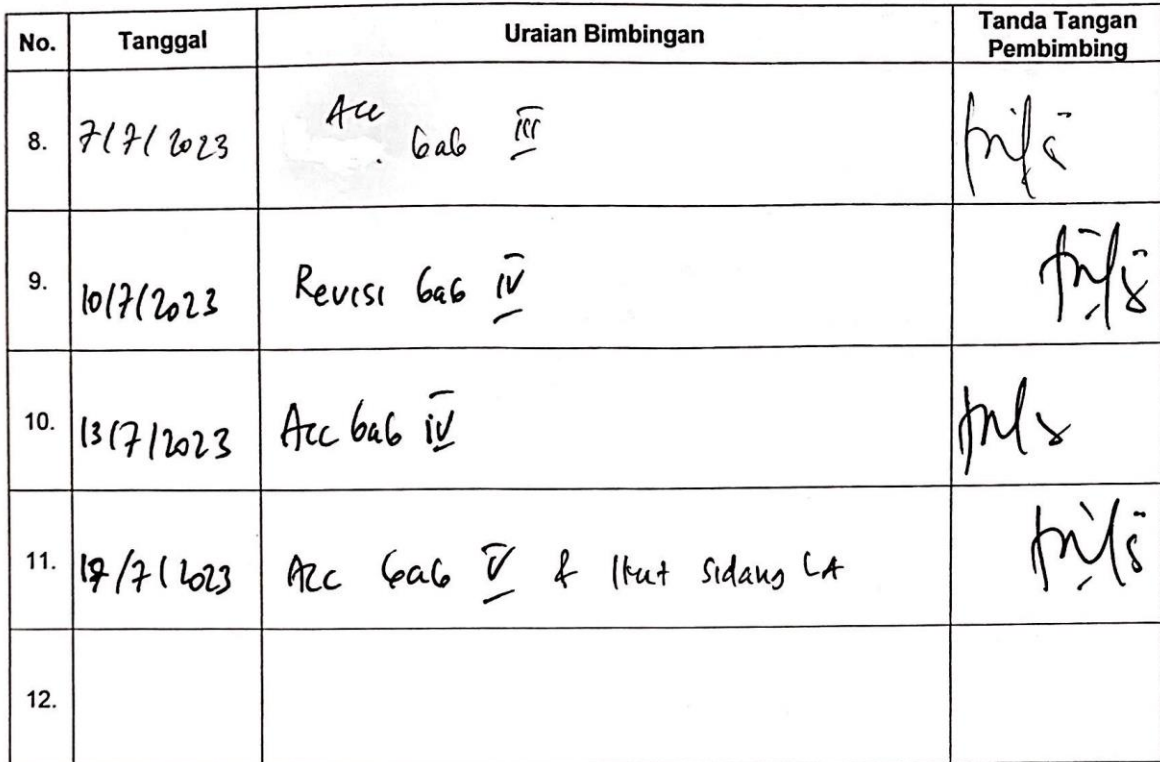 No. Tanggal Uraian Bimbingan Tanda Tangan Pembimbing
8. 7/7/2023 Acc bab III
9. 10/7/2023 Revisi bab IV
10. 13/7/2023 Acc bab IV
11. /7/2023 Acc bab V & Ikut Sidang LA
12.